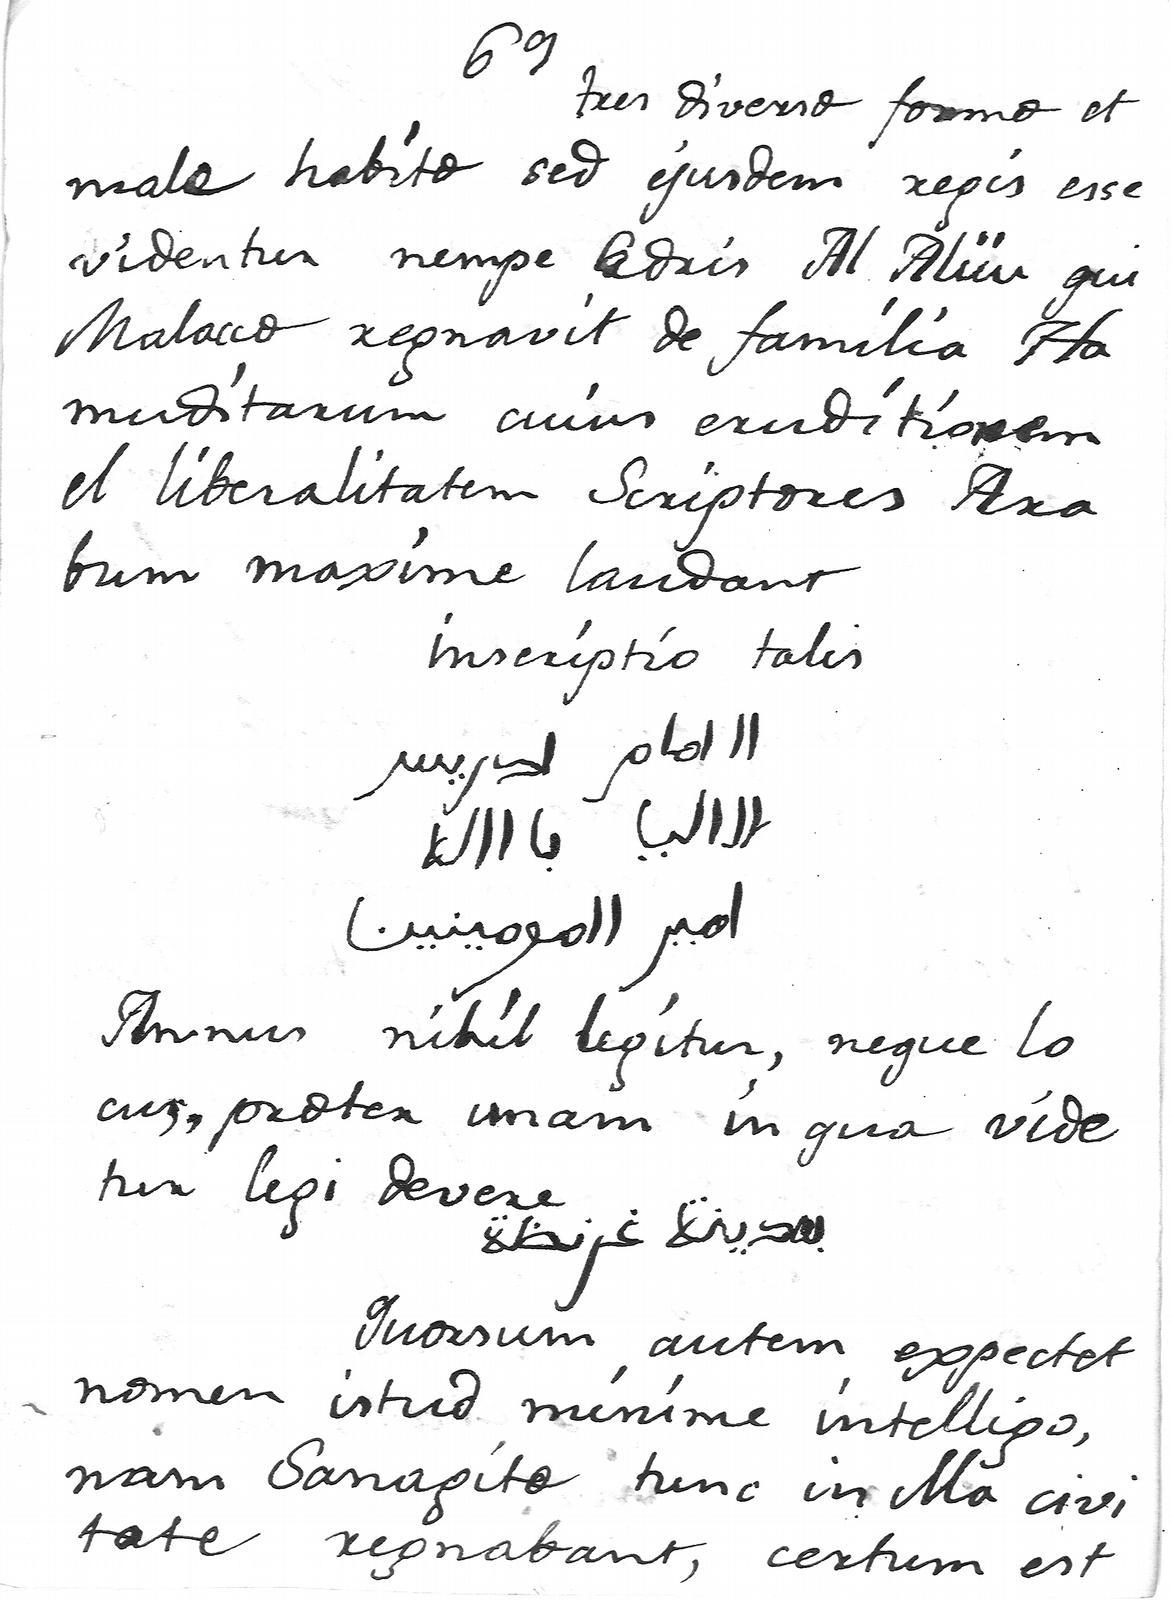 69
tres diversæ formæ et
malæ habitæ sed ejusdem regis esse
videntur nempe Edris Al Aliiu qui
Malaccæ regnavit de familia Ha
muditarum cuius eruditionem
et liberalitatem Scriptores Ara
bum maxime laudant
inscriptio talis
الامام ادريس
العالي باالله
امير المومينين
Annus nihil legitur, neque lo
cus, præter unam in qua vide
tur legi devere
بمدينة غرنطة
Quorsum autem expectet
nomen istud minime intelligo,
nam Sanagitæ tunc in illa civi
tate regnabant, certum est